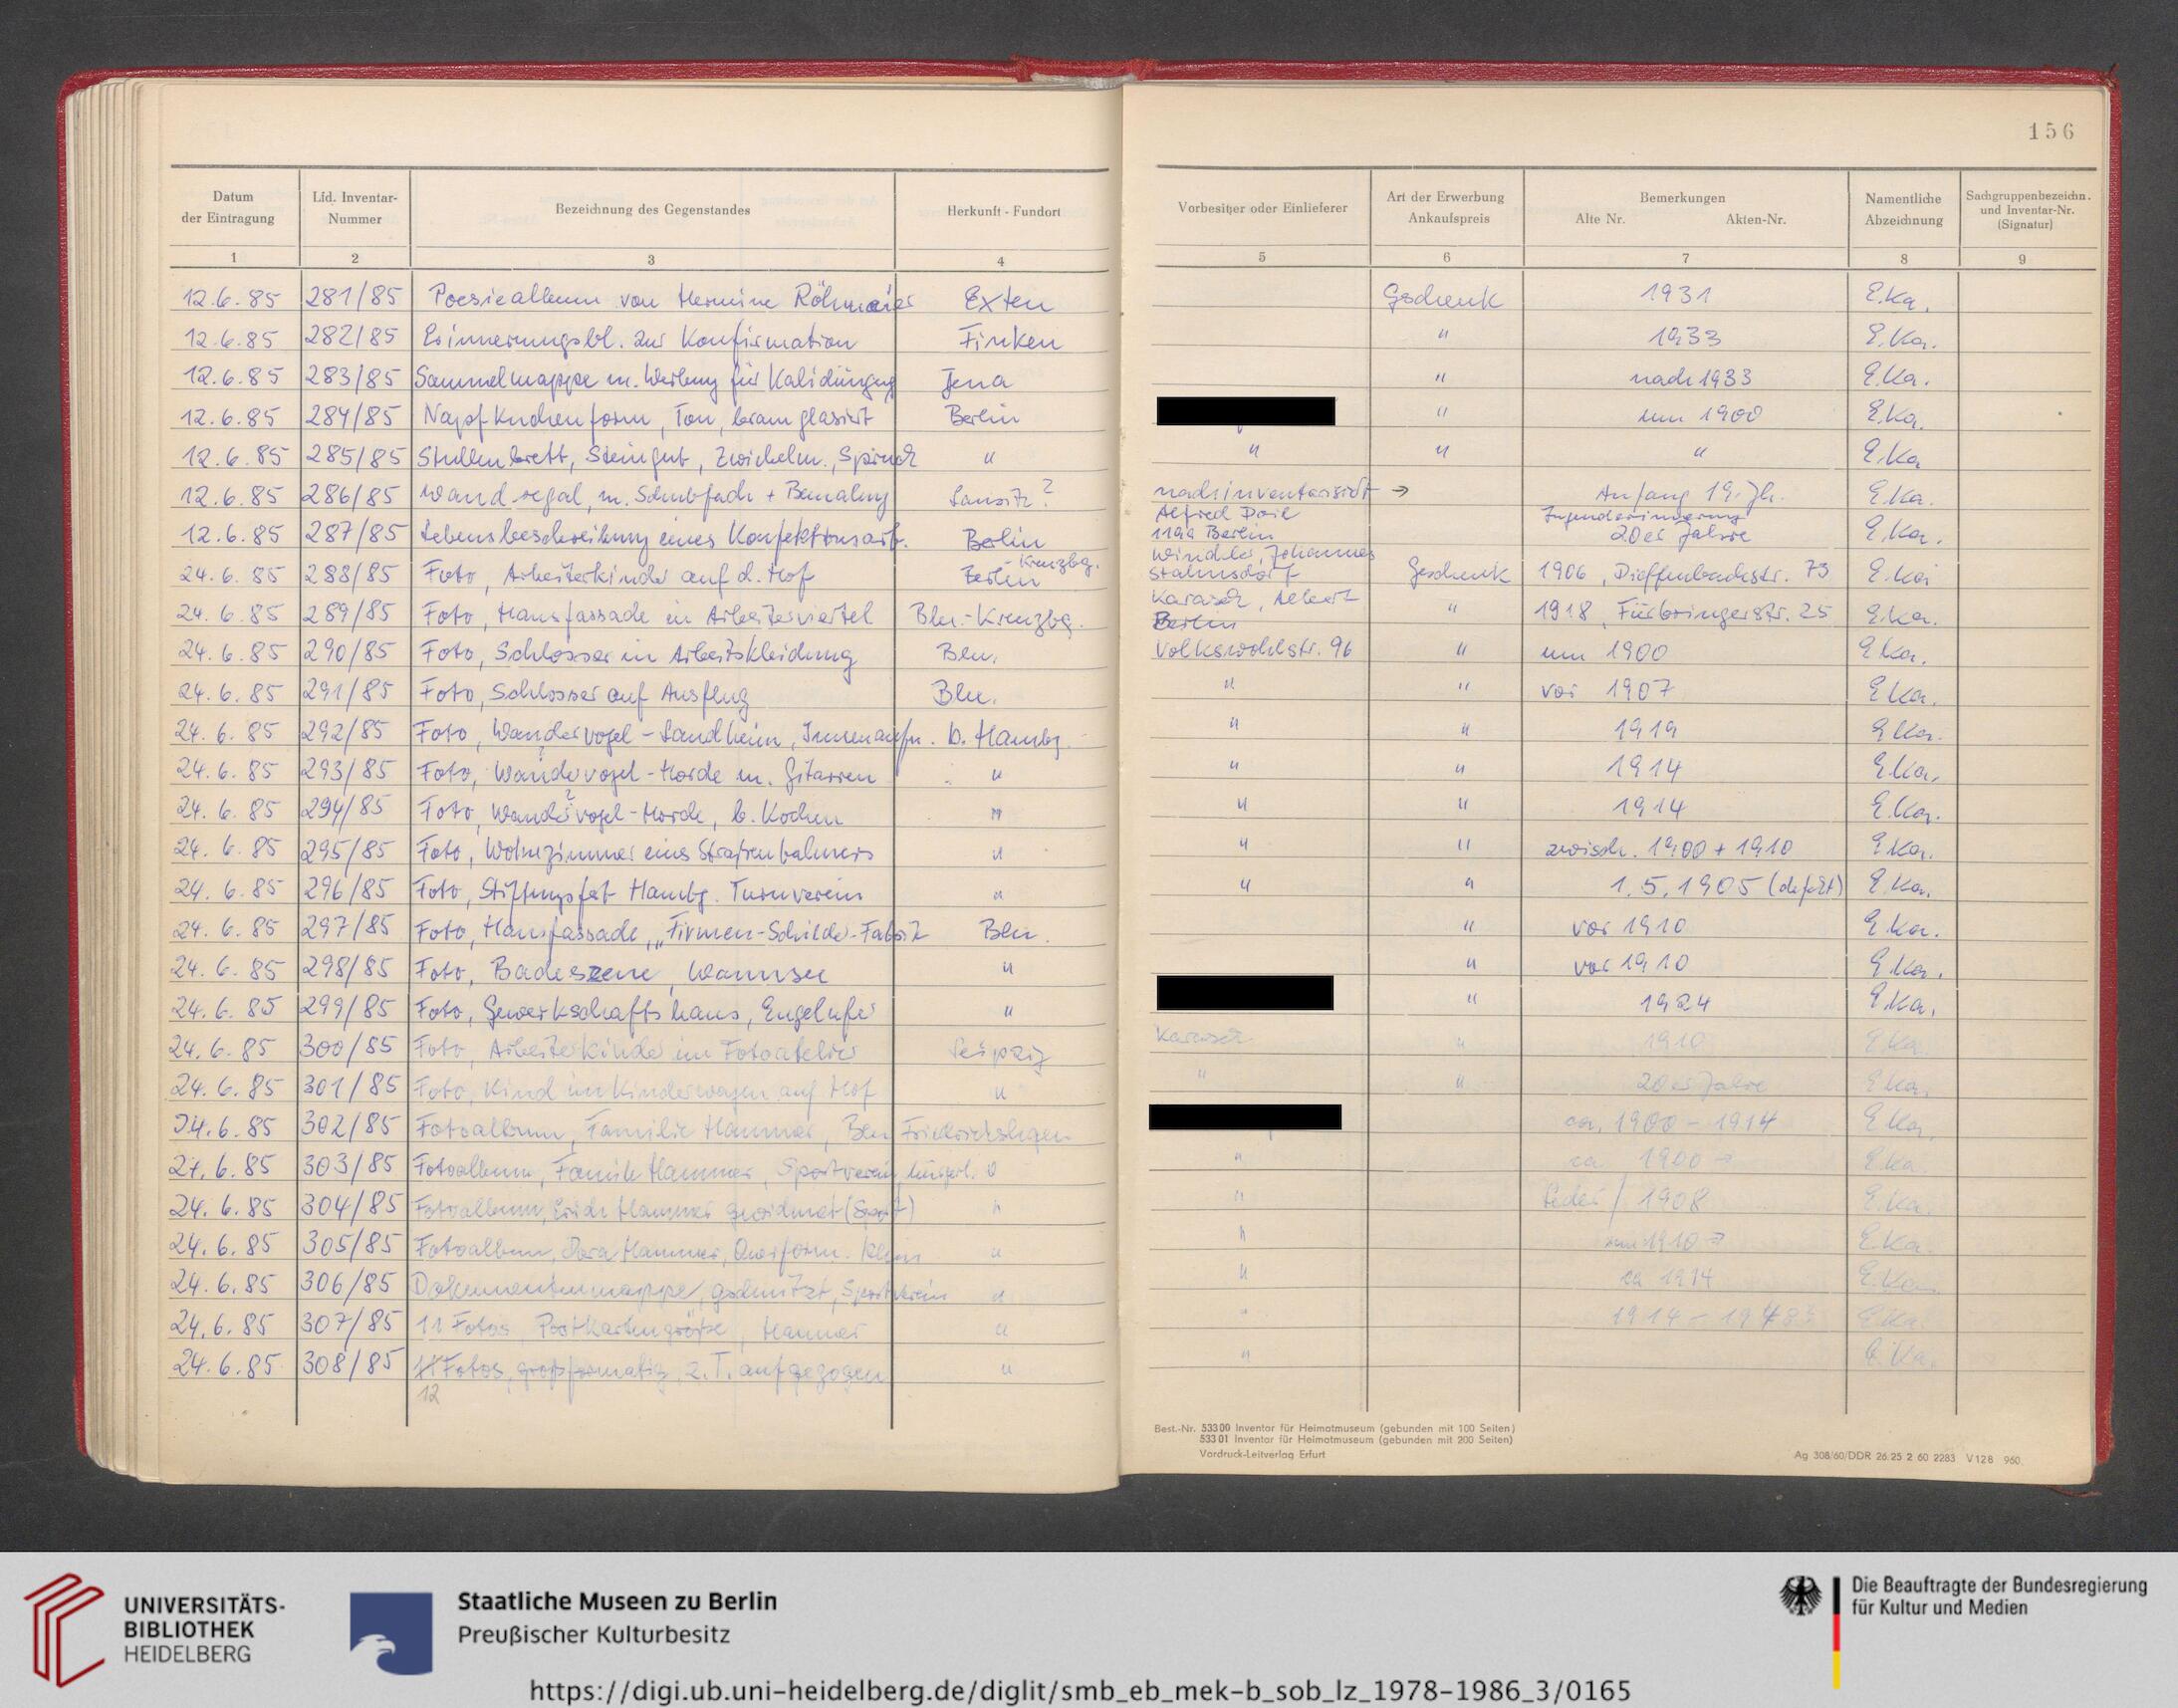 156
Datum der Eintragung Lfd. Inventar-Nummer Bezeichnung des Gegenstandes Herkunft - Fundort Vorbesitzer oder Einlieferer Art der Erwerbung Ankaufspreis Bemerkungen Alte Nr. Akten-Nr. Namentliche Abzeichnung Sachgruppenbezeichn. und Inventar-Nr. (Signatur)
1 2 3 4 5 6 7 8 9
12.6.85 281/85 Poesiealbum von Hermine Exten Geschenk 1931 E.Ka.
12.6.85 282/85 Erinnerungsbl. zur Konfirmation Finken " 1933 E.Ka.
12.6.85 283/85 Sammelmappe m. Werbung für Kalidüngung Jena " nach 1933 E.Ka.
12.6.85 284/85 Napfkuchenform, Ton, braun glasiert Berlin " um 1900 E.Ka.
12.6.85 285/85 Stullenbrett, Steingut, Zwiebelm., Spruch " " " " E.Ka
12.6.85 286/85 Wandregal, m. Schubfach + Bemalung Lausitz? nachinventarisiert → Anfang 19. Jh. E.Ka.
12.6.85 287/85 Lebensbeschreibung eines Konfektionsarb. Berlin Alfred 1199 Berlin Jugenderinnerung 20er Jahre E.Ka.
24.6.85 288/85 Foto, Arbeiterkinder auf d. Hof Berlin-Kreuzbg. Windler, Johannes Stahnsdorf Geschenk 1906, Dieffenbachstr. 73 E.Ka
24.6.85 289/85 Foto, Hausfassade in Arbeiterviertel Bln.-Kreuzbg. Karasek, Albert Berlin " 1918, Fürbringerstr. 25 E.Ka.
24.6.85 290/85 Foto, Schlosser in Arbeitskleidung Bln. Volkswohlstr. 96 " um 1900 E.Ka.
24.6.85 291/85 Foto, Schlosser auf Ausflug Bln. " " vor 1907 E.Ka.
24.6.85 292/85 Foto, Wandervogel-Landheim, Innenaufn. b. Hambg. " " 1919 E.Ka.
24.6.85 293/85 Foto, Wandervogel-Horde m. Gitarren " " " 1914 E.Ka.
24.6.85 294/85 Foto, Wandervogel-Horde, b. Kochen " " " 1914 E.Ka.
24.6.85 295/85 Foto, Wohnzimmer eines Straßenbahners " " " zwisch. 1900 + 1910 E.Ka.
24.6.85 296/85 Foto, Stiftungsfest Hambg. Turnverein " " " 1.5.1905 (defekt) E.Ka.
24.6.85 297/85 Foto, Hausfassade, „Firmen-Schilder-Fabrik Bln. " vor 1910 E.Ka.
24.6.85 298/85 Foto, Badeszene, Wannsee " " vor 1910 E.Ka.
24.6.85 299/85 Foto, Gewerkschaftshaus, Engelufer " " 1924 E.Ka.
24.6.85 300/85 Foto, Arbeiterkinder im Fotoatelier Leipzig Karasek " 1910 E.Ka.
24.6.85 301/85 Foto, Kind im Kinderwagen auf Hof " " " 20er Jahre E.Ka.
24.6.85 302/85 Fotoalbum, Familie Hammer, Bln Friedrichshagen ca. 1900 - 1914 E.Ka.
24.6.85 303/85 Fotoalbum, Familie Hammer, Sportverein, " ca 1900 → E.Ka.
24.6.85 304/85 Fotoalbum, Erich Hammer gewidmet (Sport) " " Leder/ 1908 E.Ka.
24.6.85 305/85 Fotoalbum, Dora Hammer, Querform. klein " " um 1910 → E.Ka.
24.6.85 306/85 Dokumentenmappe, geschnitzt, Sportverein " " ca 1914 E.Ka.
24.6.85 307/85 11 Fotos, Postkartengröße, Hammer " " 1914 - E.Ka.
24.6.85 308/85 11 Fotos, großformatig, z.T. aufgezogen " " E.Ka.
12
Best.-Nr. 533 00 Inventar für Heimatmuseum (gebunden mit 100 Seiten)
533 01 Inventar für Heimatmuseum (gebunden mit 200 Seiten)
Vordruck-Leitverlag Erfurt
Ag 308/60/DDR 26 25 2 60 2283 V128 960
UNIVERSITÄTS-
BIBLIOTHEK
HEIDELBERG
Staatliche Museen zu Berlin
Preußischer Kulturbesitz
Die Beauftragte der Bundesregierung
für Kultur und Medien
https://digi.ub.uni-heidelberg.de/diglit/smb_eb_mek-b_sob_lz_1978-1986_3/0165